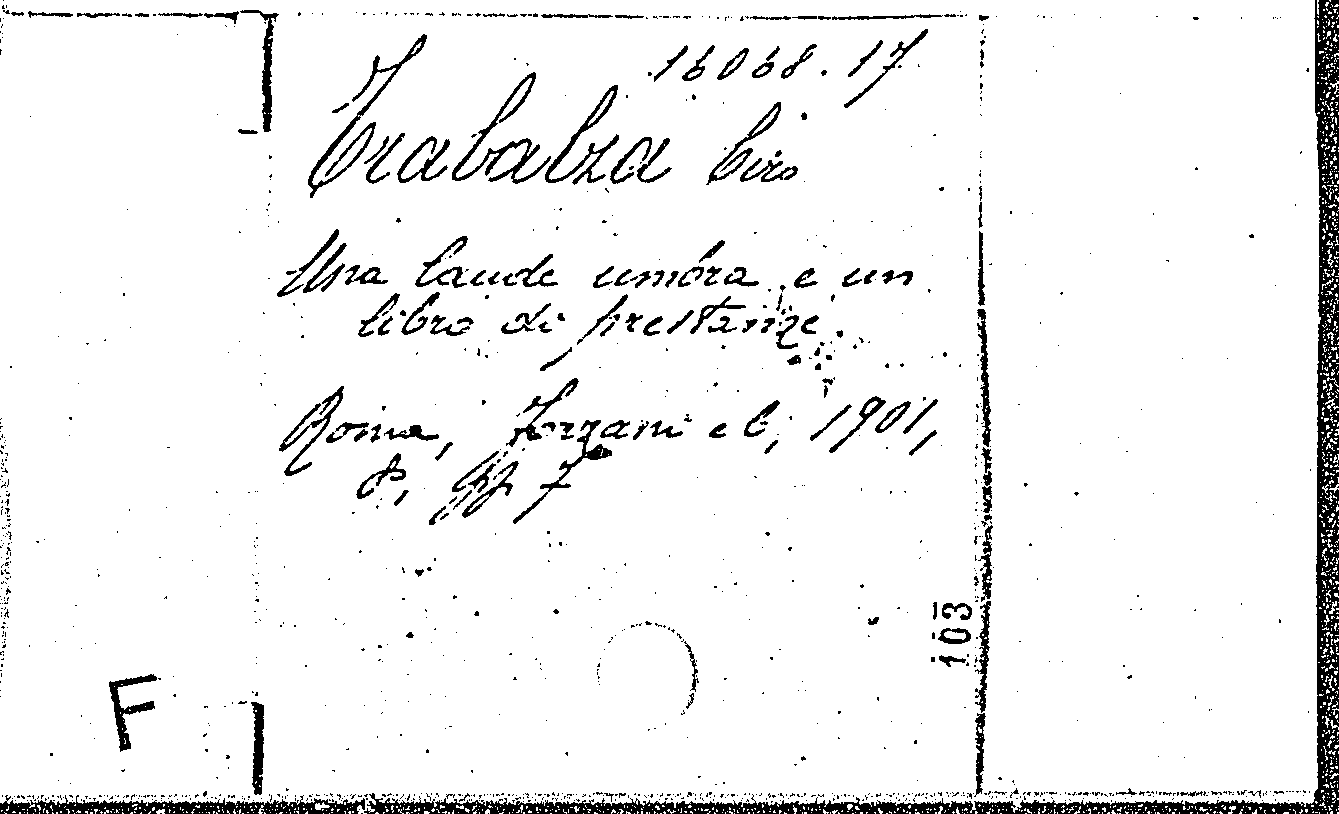 16068.17
Trabalza Ciro
Una laude umbra e un
libro di prestanze.
Roma, Forzani e C, 1901,
8°, pp 7
103
F